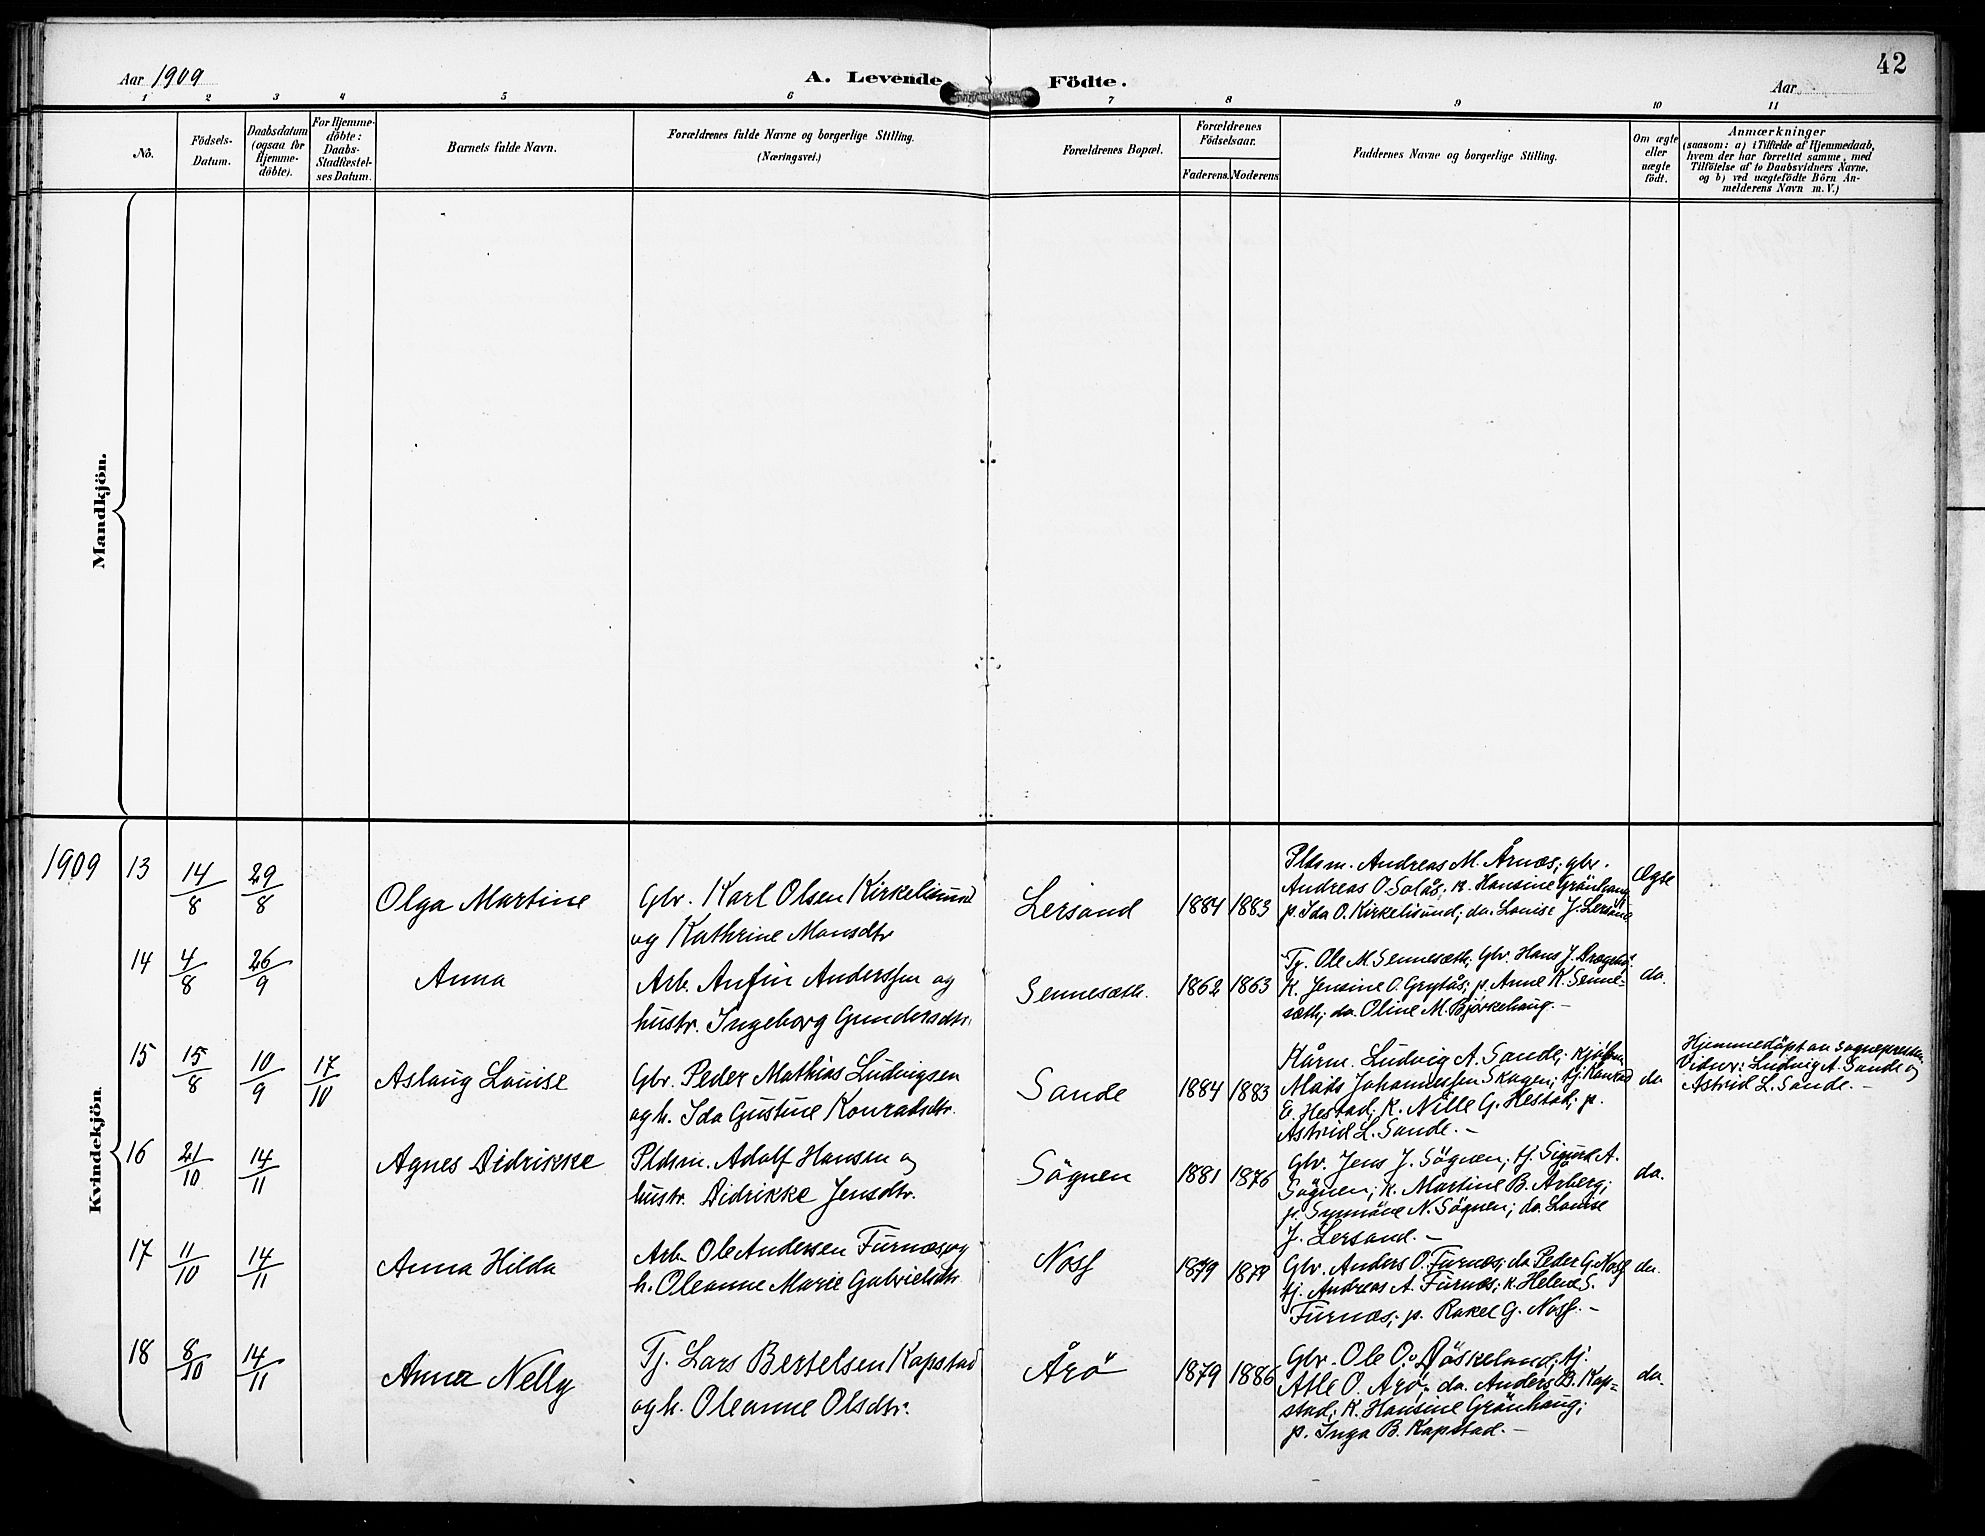 42
Aar 1909
A. Levende
Födte.
Aar
1 2 3 4 5 6 7 8 9 10 11
No.
Födsels-
Datum.
Daabsdatum
(ogsaa for
Hjemme-
döbte).
For Hjemme-
döbte:
Daabs-
Stadfæstel-
ses Datum.
Barnets fulde Navn.
Forældrenes fulde Navne og borgerlige Stilling.
(Næringsvei.)
Forældrenes Bopæl.
Forældrenes
Födselsaar.
Faderens. Moderens
Faddernes Navne og borgerlige Stilling.
Om ægte
eller
uægte
födt.
Anmærkninger
(saasom: a) i Tilfælde af Hjemmedaab,
hvem der har forrettet samme, med
Tilföielse af to Daabsvidners Navne.
og b) ved uægtefödte Börn An-
melderens Navn m. V.)
Mandkjön.
Kvindekjön
1909
13
14/8
29/8
Olga Martine
Gbr. Karl Olsen Kirkelisund
og Kathrine Monsdtr
Lersand
1884 1883
Pldsm. Andreas M. Årnæs; gbr.
Andreas O. Solås; k. Hansine Grönhaug
p. Ida O. Kirkelisund; do. Louise J. Lersand
Ægte
14
4/8
26/9
Anna
Arb. Anfin Anderssen og
hustr. Ingeborg Gundersdtr.
Sennesæth.
1862 1863
Tj. Ole M. Sennesæth; Gbr. Hans J.
K. Jensine O. Grytås; p. Anne K. Senne-
sæth; do. Oline M. Björkehaug. –
do.
15
15/8
10/9
17/10
Aslaug Louise
Gbr. Peder Mathias Ludvigsen
og h. Ida Gustine Konradsdtr.
Sande
1884 1883
Kårm. Ludvig A. Sande;
Mads Johannessen Skagen; tj. Konrad
E. Hestad; K. Nille G. Hestad; p.
Astrid L. Sande. –
do
Hjemmedöpt av Sognepresten
Vidner: Ludvig A. Sande og
Astrid L. Sande. –
16
21/10
14/11
Agnes Didrikke
Pldsm. Adolf Hansen og
hustr. Didrikke Jensdtr.
Sögnen
1881 1876
Gbr. Jens J. Sögnen; tj. Sigurd A.
Sögnen; k. Martine B. Årberg;
p. Synnöve N. Sögnen; do. Louise
J. Lersand. –
do.
17
11/10
14/11
Anna Hilda
Arb. Ole Andersen Furnæs og
h. Oleanne Marie Gabrielsdtr
Nossf
1879
Gbr. Anders O. Furnæs; do Peder G. Nossf
tj. Andreas A. Furnæs; k. Helene S.
Furnæs; p. Rakel G. Nossf. –
do.
18
8/10
14/11
Anna Nelly
Tj. Lars Bertelsen Kapstad
og h. Oleanne Olsdtr.
Årö
1879 1886
Gbr. Ole O. Döskeland; tj.
Atle O. Årö; do. Anders B. Kap=
stad; K. Hansine Grönhaug;
p. Inga B. Kapstad. –
do.